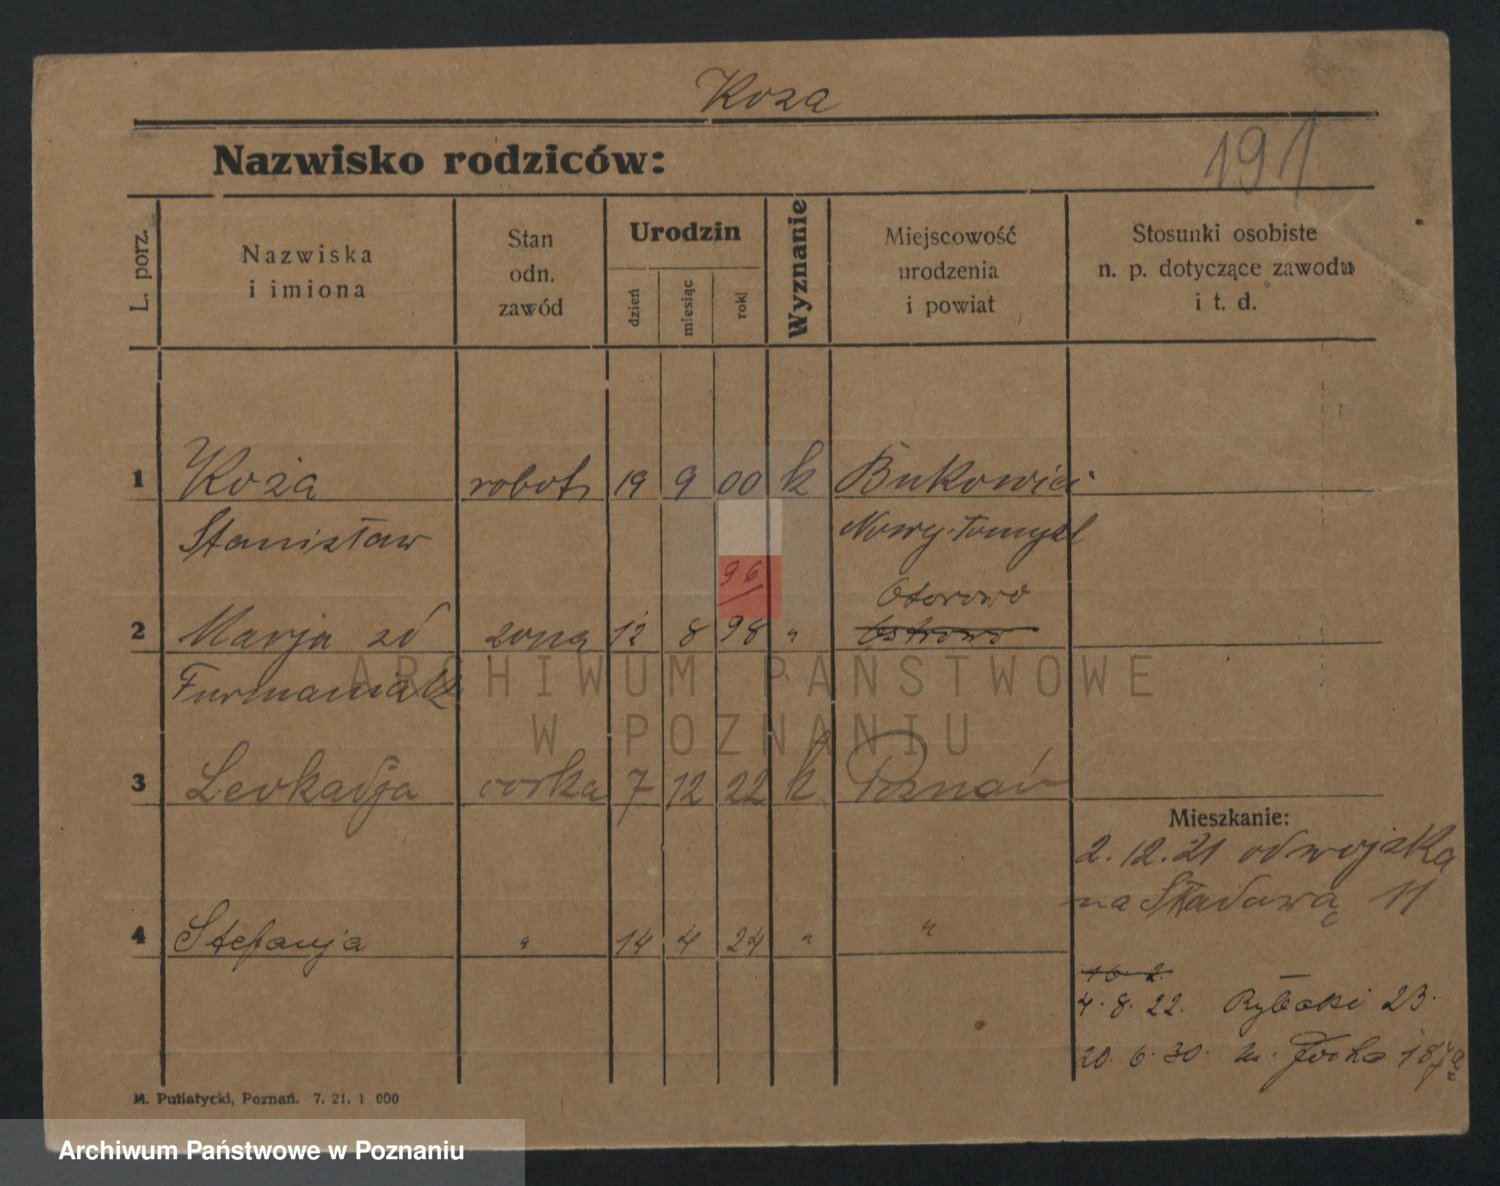 Koza
Nazwisko rodziców:
191
L. porz.
Nazwiska
i imiona
Stan
odn.
zawód
Urodzin
dzień
miesiąc
rok
Wyznanie
Miejscowość
urodzenia
i powiat
Stosunki osobiste
n. p. dotyczące zawodu
i t. d.
1 Koza robotn 19 9 00 k Bukowiec
Stanisław Nowy-Tomyśl
96 Otorowo
2 Marja zd żona 12 8 98 " Ostrowo
Furmaniak
3 Leokadja córka 7 12 22 k Poznań
Mieszkanie:
2.12.21 od wojska
na Składową 11
4 Stefanja " 14 4 24 " "
16 2.
4.8.22. Rybaki 23.
20.6.30. m.
M. Putiatycki, Poznań. 7. 21. 1 000
ARCHIWUM PAŃSTWOWE
W POZNANIU
Archiwum Państwowe w Poznaniu